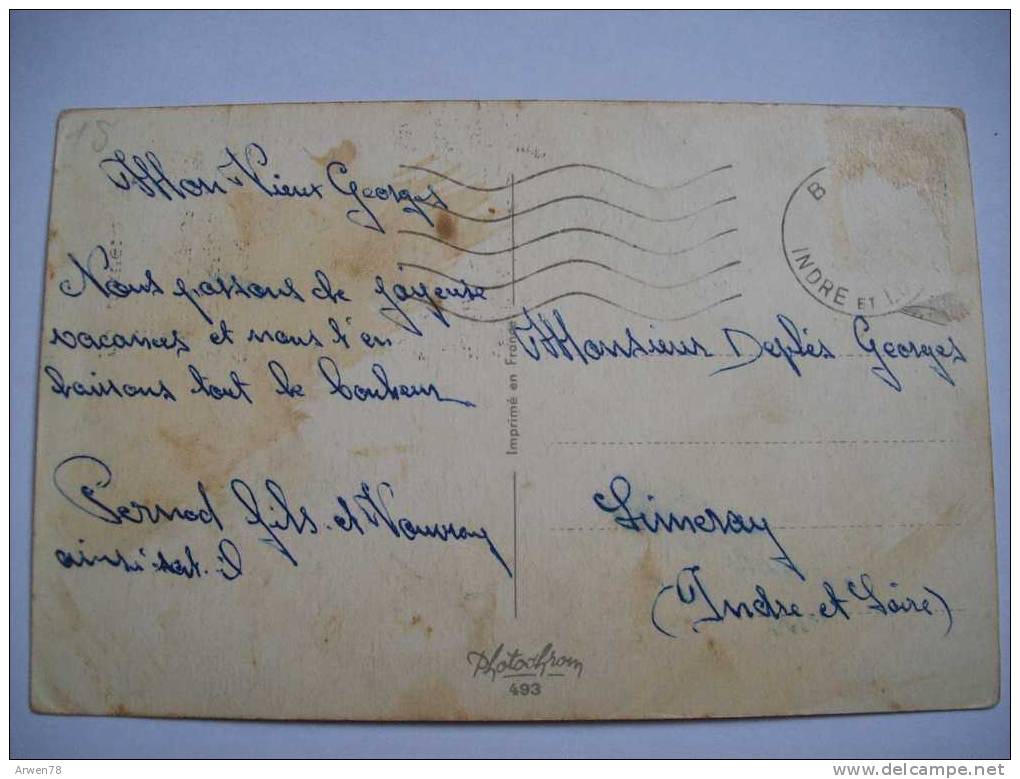 15
Mon Vieux Georges
Nous passons de joyeuse
vacances et nous t'en
baisons tout le bonheur
Pernod fils et Vouvray
ainsi soit.il
Imprimé en France
B
INDRE ET
Monsieur Deplès Georges
Limeray
(Indre et Loire)
Photochrom
493
Arwen78
www.delcampe.net